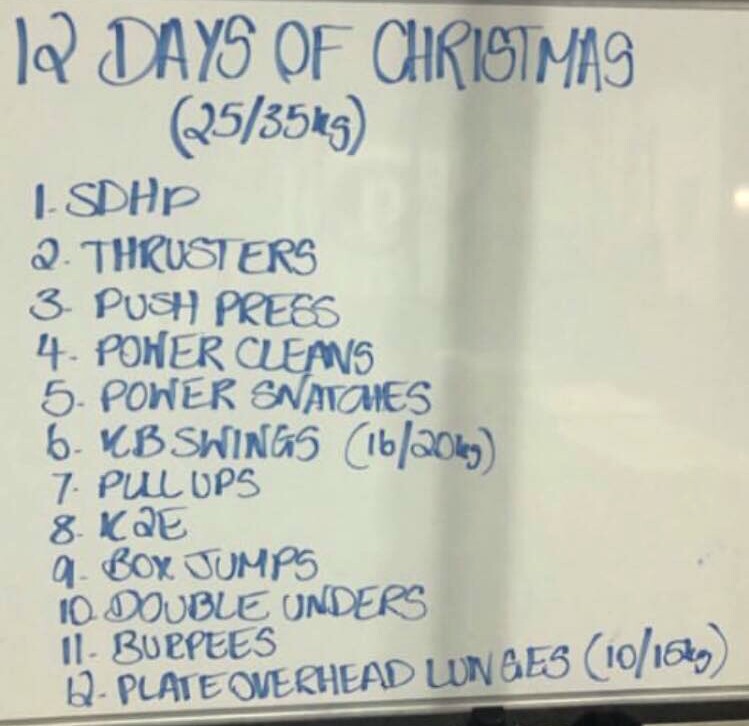 12 DAYS OF CHRISTMAS
(25/35kg)
1. SDHP
2. THRUSTERS
3- PUSH PRESS
4- POWER CLEANS
5- POWER SNATCHES
6- KB SWINGS (16/20kg)
7- PULL UPS
8- K2E
9- BOX JUMPS
10. DOUBLE UNDERS
11- BURPEES
12- PLATE OVERHEAD LUNGES (10/15kg)